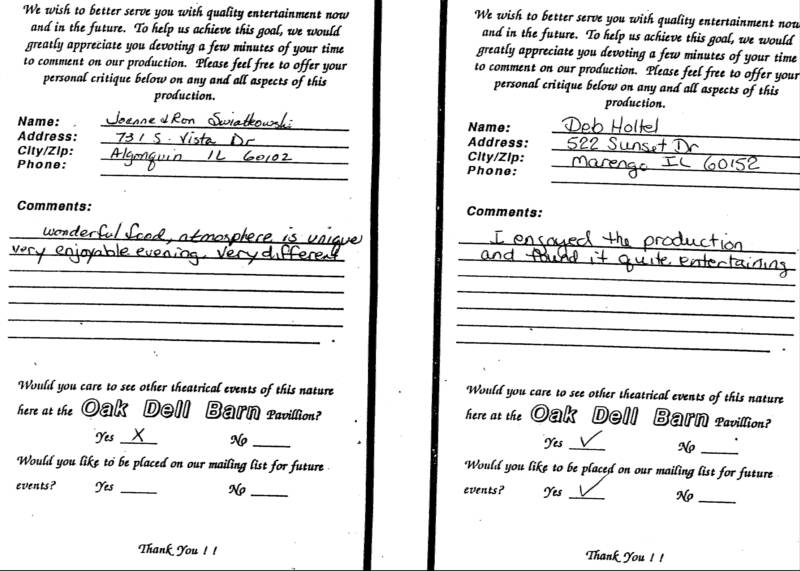 We wish to better serve you with quality entertainment now
and in the future. To help us achieve this goal, we would
greatly appreciate you devoting a few minutes of your time
to comment on our production. Please feel free to offer your
personal critique below on any and all aspects of this
production.
Name: Joanne & Ron Swiatkowski
Address: 731 S. Vista Dr
City/Zip: Algonquin IL 60102
Phone:
Comments:
wonderful food, atmosphere is unique
very enjoyable evening. Very different
Would you care to see other theatrical events of this nature
here at the Oak Dell Barn Pavillion?
Yes X No
Would you like to be placed on our mailing list for future
events? Yes No
Thank You ! !
We wish to better serve you with quality entertainment now
and in the future. To help us achieve this goal, we would
greatly appreciate you devoting a few minutes of your time
to comment on our production. Please feel free to offer your
personal critique below on any and all aspects of this
production.
Name: Deb Holtel
Address: 522 Sunset Dr
City/Zip: Marengo IL 60152
Phone:
Comments:
I enjoyed the production
and found it quite entertaining
Would you care to see other theatrical events of this nature
here at the Oak Dell Barn Pavillion?
Yes ✓ No
Would you like to be placed on our mailing list for future
events? Yes ✓ No
Thank You ! !